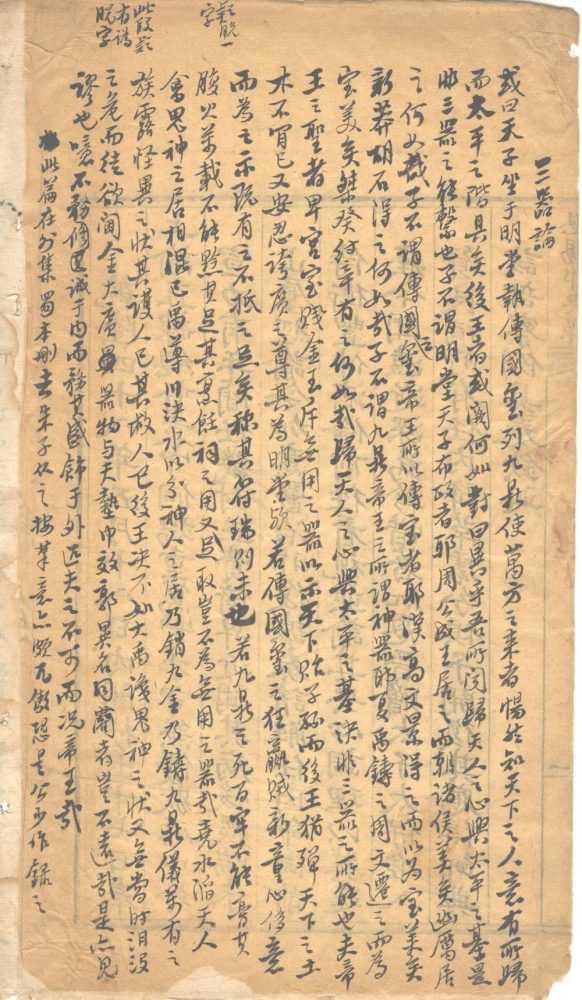 三器論
或曰天子坐于明堂執傳國璽列九鼎使萬方之來者惕然知天下之人意有所歸
而太平之階具矣後王者或闕何如對曰異乎吾所聞歸天人之心興太平之基是
非三器之能繫也子不謂明堂天子布政者耶周公成王居之而朝諸侯美矣幽厲居
之何如哉子不謂傳國璽帝王所以傳宝者耶漢高文景得之而以為宝美矣
新莽胡石得之何如哉子不謂九鼎帝王之所謂神器耶夏禹鑄之周文遷之而為
宝美矣桀癸紂辛有之何如哉歸天人之心興太平之基決非三器之所能也夫帝
王之聖者卑宮室賤金玉斥無用之器以示天下貽子孫而後王猶殫天下之土
木不肎已又安忍誇廣之尊其為明堂歟若傳國璽之狂嬴賊新童心侈意
而為之示既有之不抵之足矣称其符瑞則未也若九鼎之死百牢不能膏其
腹火萬載不能黔其足其烹飪祠之用又足取豈不為無用之器哉堯水滔天人
禽鬼神之居相混已禹導川決水以分神人之居乃銷九金乃鑄九鼎儀萬有之
族露怪異之狀其護人已其救人已後王決不如大禹識鬼神之狀又無當時汩没
之危而徒欲闊金大廣其器物与夫墊巾效郭異名同藺者豈不遠哉是亦見
謬也噫不務修其誠于内而務其盛飾于外匹夫之不可而況帝王哉
此篇在外集蜀本刪去朱子从之按其意亦頗兀傲恐是公少作録之
疑脱一
字
此段疑
有譌
脱字